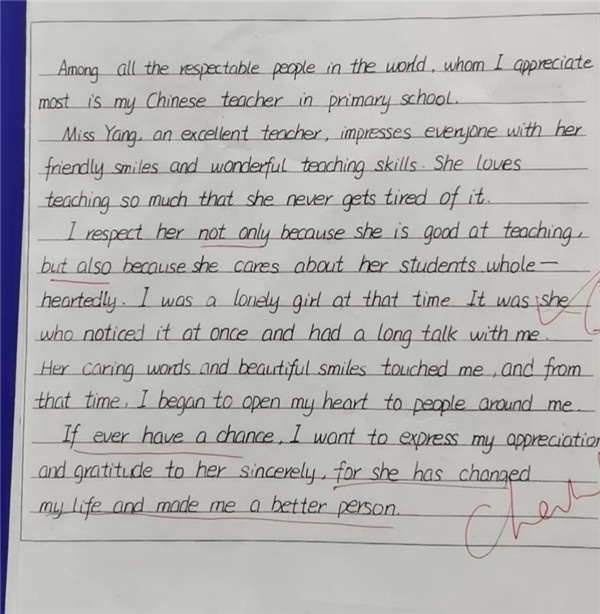 Among all the respectable people in the world, whom I appreciate
most is my Chinese teacher in primary school.
Miss Yang, an excellent teacher, impresses everyone with her
friendly smiles and wonderful teaching skills. She loves
teaching so much that she never gets tired of it.
I respect her not only because she is good at teaching,
but also because she cares about her students whole-
heartedly. I was a lonely girl at that time. It was she
who noticed it at once and had a long talk with me.
Her caring words and beautiful smiles touched me, and from
that time, I began to open my heart to people around me.
If ever have a chance, I want to express my appreciation
and gratitude to her sincerely, for she has changed
my life and made me a better person.